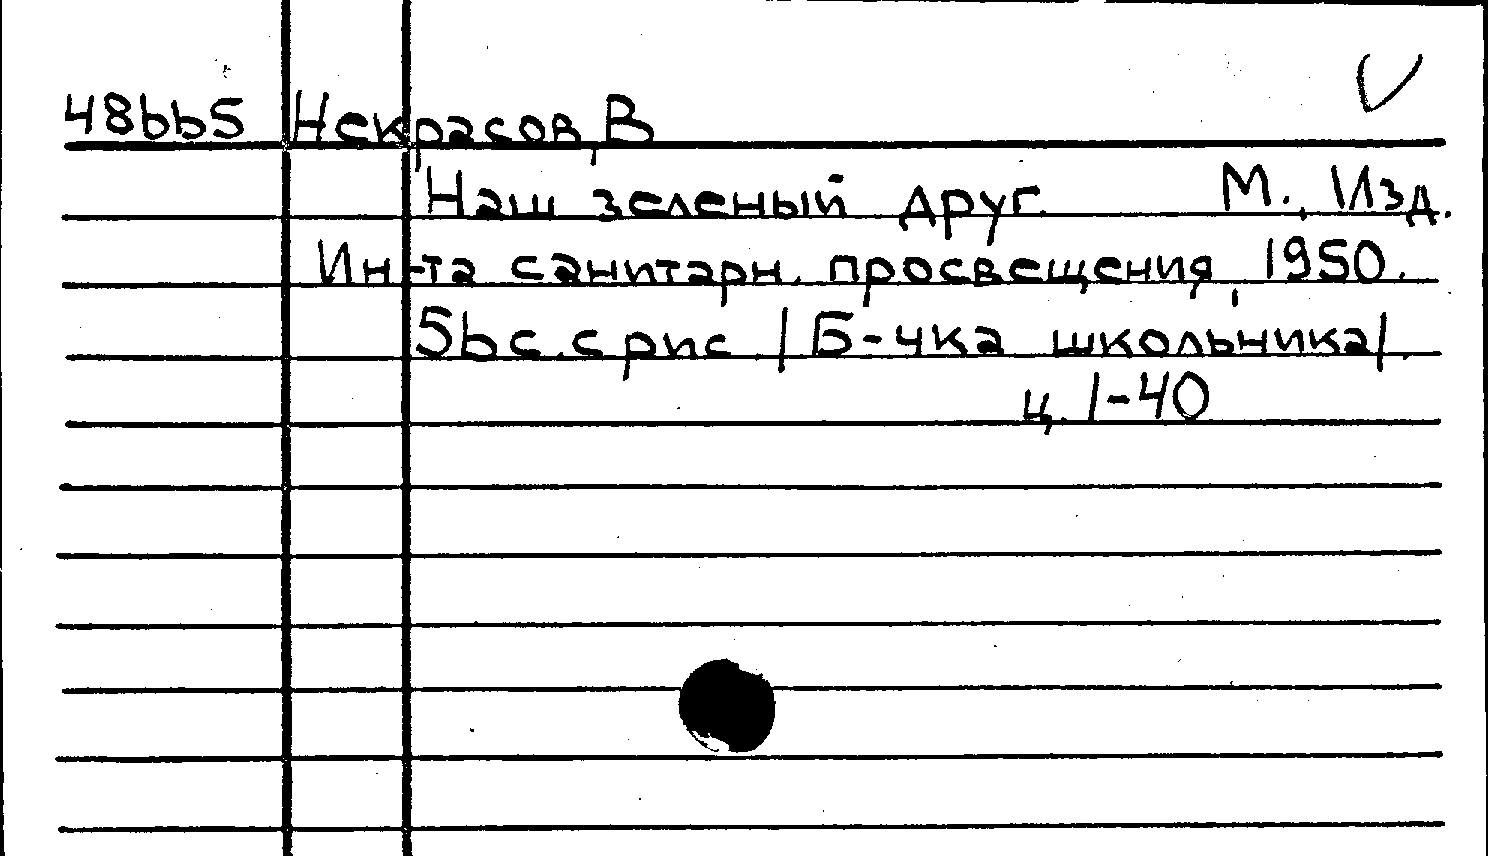 48665 Некрасов, В
Наш зеленый друг. М., Изд.
Ин-та санитарн. просвещения, 1950.
56 с. с рис. /Б-чка школьника/.
ц. 1-40